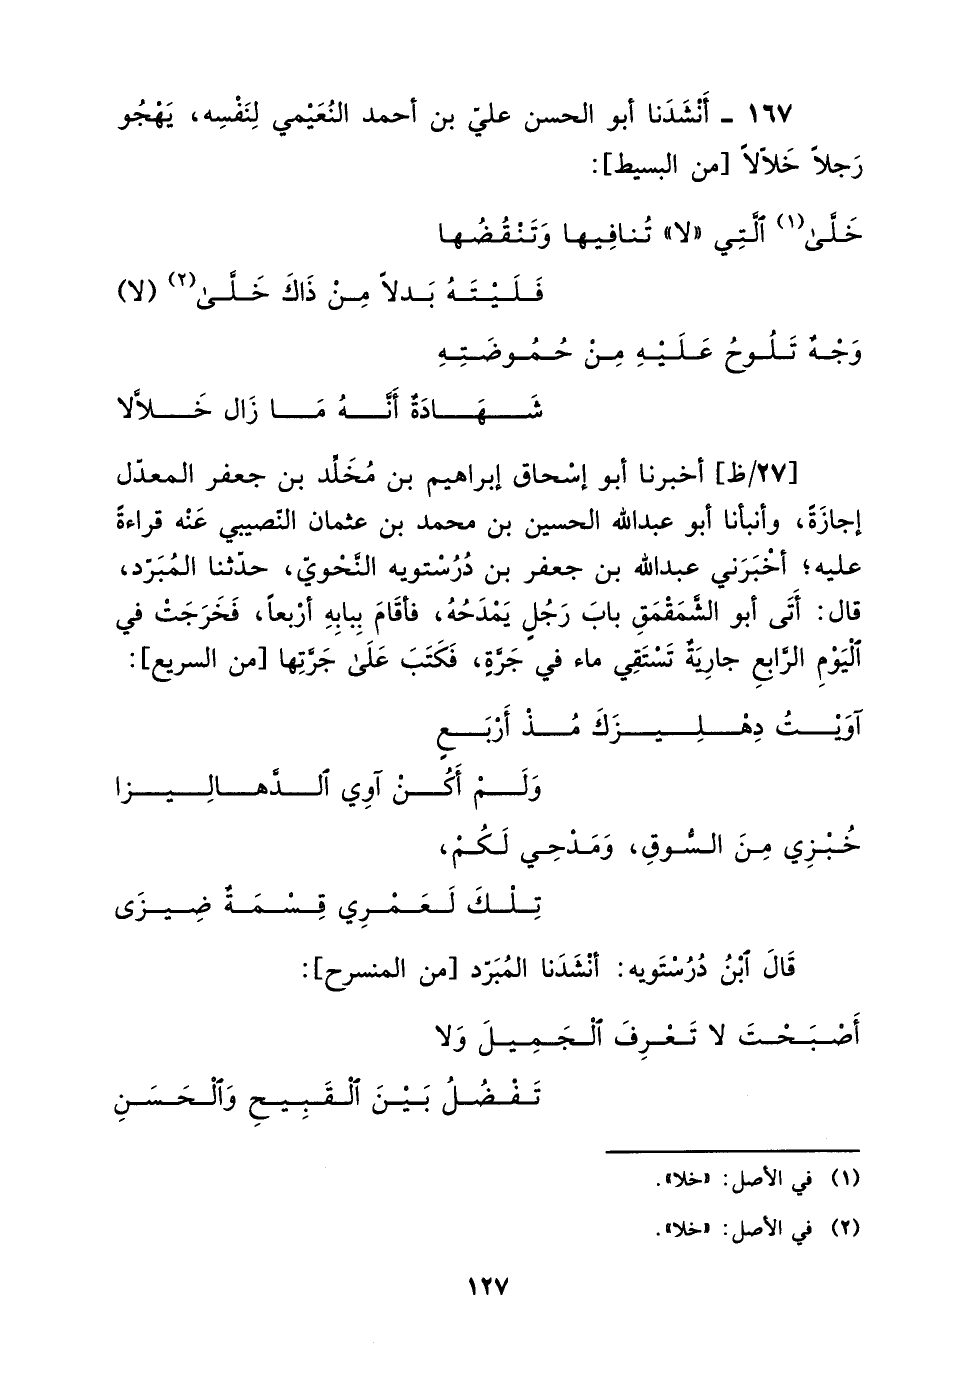 ١٦٧ ـ أَنْشَدَنا أبو الحسن عليّ بن أحمد النُعَيْمي لِنَفْسِه، يَهْجُو
رَجلاً خَلاّلاً [من البسيط]:
خَلَّىٰ(١) ٱلَّتِي «لا» تُنافِيها وَتَنْقُضُها
فَلَيْتَهُ بَدلاً مِنْ ذَاكَ خَلَّىٰ(٢) (لا)
وَجْهٌ تَلُوحُ عَلَيْهِ مِنْ حُمُوضَتِهِ
شَهَادَةٌ أَنَّهُ مَا زَال خَلاَّلا
[٢٧/ظ] أخبرنا أبو إسْحاق إبراهيم بن مُخَلَّد بن جعفر المعدّل
إجازَةً، وأنبأنا أبو عبدالله الحسين بن محمد بن عثمان النّصيبي عَنْه قراءةً
عليه؛ أخْبَرَني عبدالله بن جعفر بن دُرُسْتويه النَّحْويّ، حدّثنا المُبَرّد،
قال: أَتَى أبو الشَّمَقْمَقِ بابَ رَجُلٍ يَمْدَحُهُ، فأقَامَ بِبابِهِ أرْبعاً، فَخَرَجَتْ في
ٱلْيَوْمِ الرَّابعِ جارِيَةٌ تَسْتَقِي ماء في جَرَّةٍ، فَكَتَبَ عَلَىٰ جَرَّتِها [من السريع]:
آوَيْتُ دِهْلِيزَكَ مُذْ أَرْبَعٍ
وَلَمْ أَكُنْ آوِي ٱلدَّهالِيزا
خُبْزِي مِنَ السُّوقِ، وَمَدْحِي لَكُمْ،
تِلْكَ لَعَمْرِي قِسْمَةٌ ضِيزَى
قَالَ ٱبْنُ دُرُسْتَويه: أنْشَدَنا المُبَرّد [من المنسرح]:
أَصْبَحْتَ لا تَعْرِفَ ٱلْجَمِيلَ وَلا
تَفْضُلُ بَيْنَ ٱلْقَبِيحِ وَٱلْحَسَنِ
(١) في الأصل: «خلا».
(٢) في الأصل: «خلا».
١٢٧